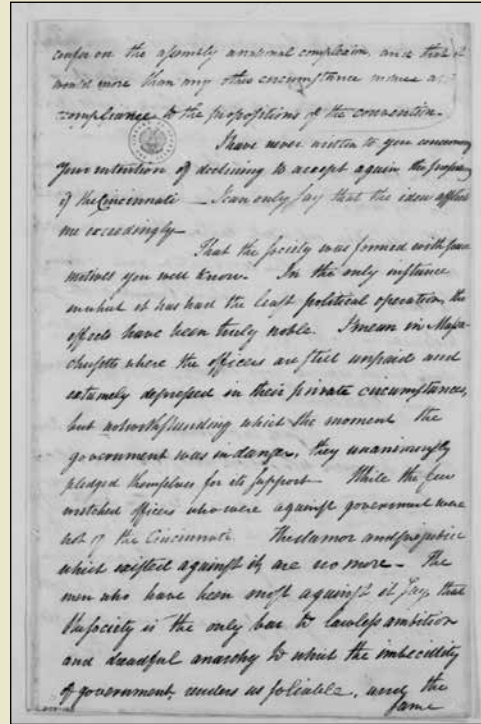 confer on the assembly a national complexion, and that it
would more than any other circumstance induce a
compliance to the propositions of the convention.
I have never written to you concerning
your intention of declining to accept again the
of the Cincinnati — I can only say that the idea afflicts
me exceedingly—
That the society was formed with pure
motives you well know. In the only instance
in which it has had the least political operation, the
effects have been truly noble. I mean in Massa-
chusetts where the officers are still unpaid and
extremely depressed in their private circumstances,
but notwithstanding which the moment the
government was in danger, they unanimously
pledged themselves for its support — While the few
wretched officers who were against government were
not of the Cincinnati. The clamor and prejudice
which existed against it, are no more — The
men who have been most against it say, that
the society is the only bar to lawless ambition
and dreadful anarchy to which the imbecillity
of government, renders us so liable, and the
same